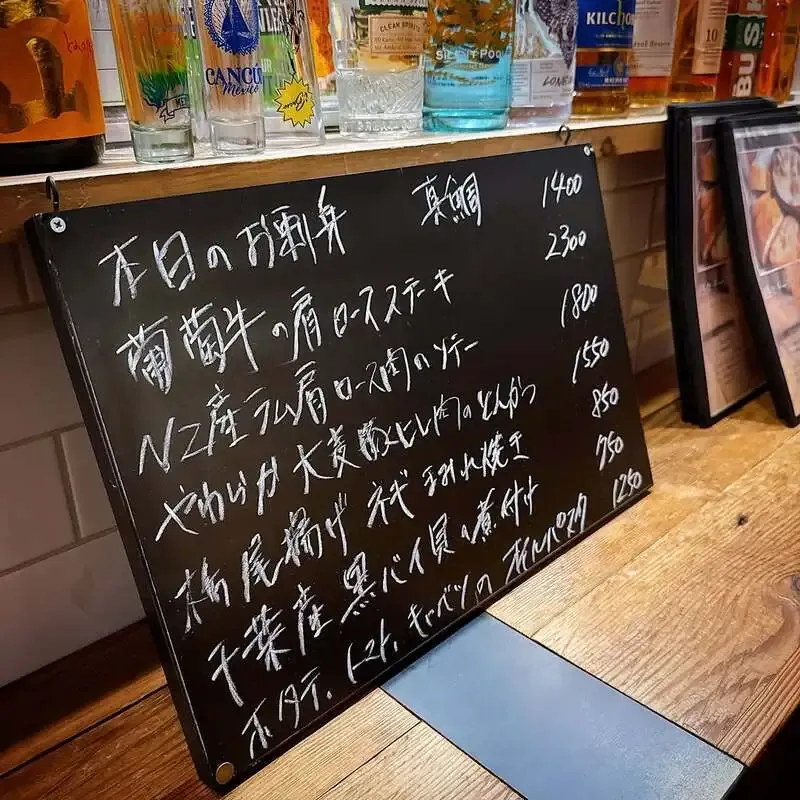 CANCÚN
México
CLEAN SPIRITS
SILENT POOL
KILCHO
10
BUSH
本日のお刺身 真鯛 1400
葡萄牛の肩ロースステーキ 2300
NZ産ラム肩ロース肉のソテー 1800
やわらか大麦豚ヒレ肉のとんかつ 1550
栃尾揚げ ネギまみれ焼き 850
千葉産 黒バイ貝の煮付け 750
ホタテ、トマト、キャベツのオイルパスタ 1250